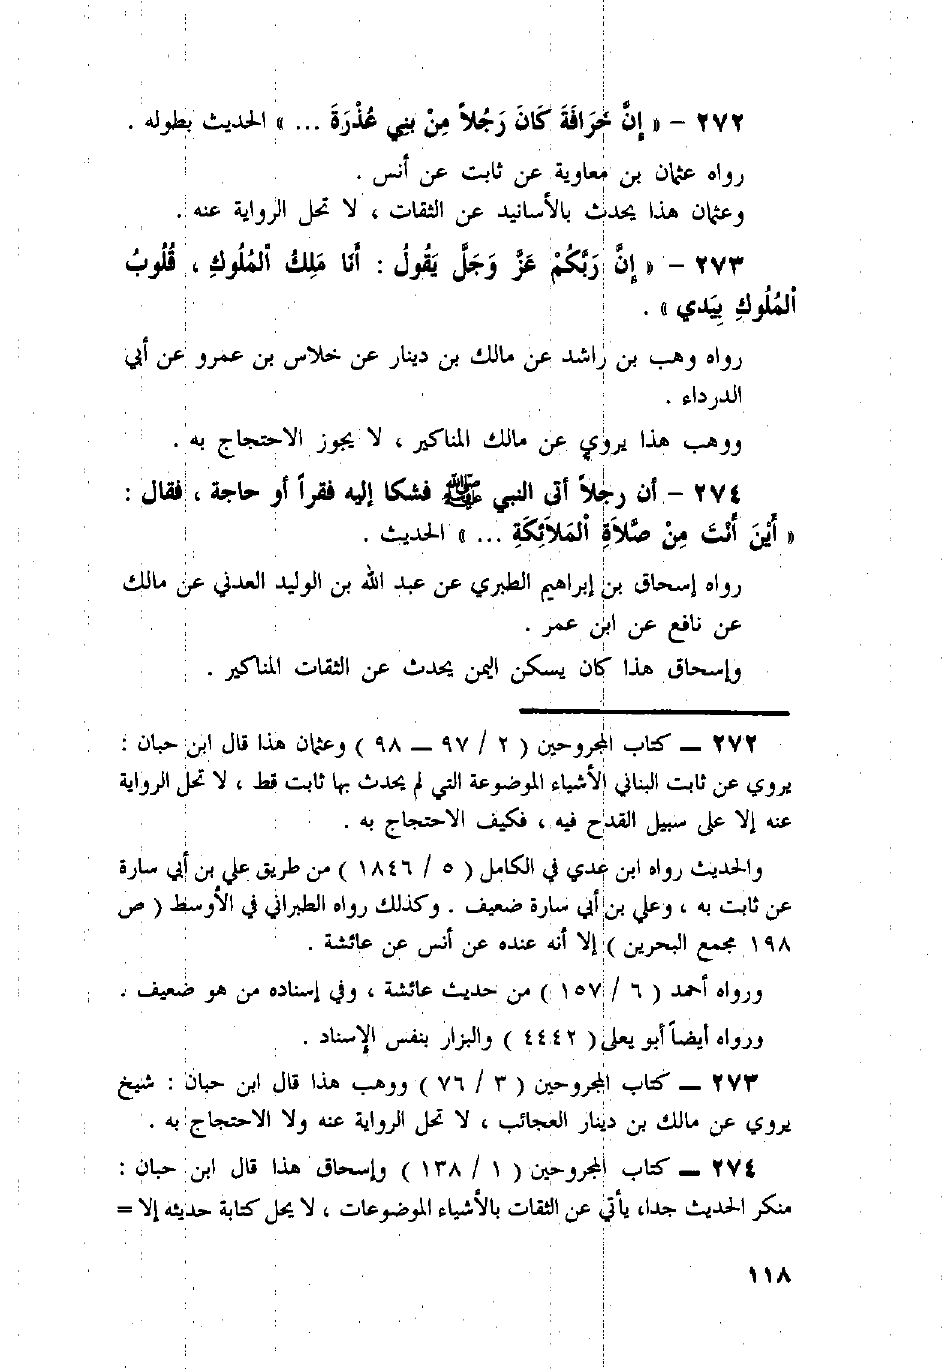 ٢٧٢ – « إِنَّ خَرَافَةَ كَانَ رَجُلاً مِنْ بَنِي عُذْرَةَ ... » الحديث بطوله .
رواه عثمان بن معاوية عن ثابت عن أنس .
وعثمان هذا يحدث بالأسانيد عن الثقات ، لا تحل الرواية عنه .
٢٧٣ – « إِنَّ رَبَّكُمْ عَزَّ وَجَلَّ يَقُولُ : أَنَا مَلِكُ اْلمُلُوكِ ، قُلُوبُ
اْلمُلُوكِ بِيَدي » .
رواه وهب بن راشد عن مالك بن دينار عن خلاس بن عمرو عن أبي
الدرداء .
ووهب هذا يروي عن مالك المناكير ، لا يجوز الاحتجاج به .
٢٧٤ – أن رجلاً أتى النبي ﷺ فشكا إليه فقراً أو حاجة ، فقال :
« أَيْنَ أَنْتَ مِنْ صَّلاَةِ اْلمَلاَئِكَةِ ... » الحديث .
رواه إسحاق بن إبراهيم الطبري عن عبد الله بن الوليد العدني عن مالك
عن نافع عن ابن عمر .
وإسحاق هذا كان يسكن اليمن يحدث عن الثقات المناكير .
٢٧٢ – كتاب المجروحين ( ٢ / ٩٧ – ٩٨ ) وعثمان هذا قال ابن حبان :
يروي عن ثابت البناني الأشياء الموضوعة التي لم يحدث بها ثابت قط ، لا تحل الرواية
عنه إلا على سبيل القدح فيه ، فكيف الاحتجاج به .
والحديث رواه ابن عدي في الكامل ( ٥ / ١٨٤٦ ) من طريق علي بن أبي سارة
عن ثابت به ، وعلي بن أبي سارة ضعيف . وكذلك رواه الطبراني في الأوسط ( ص
١٩٨ مجمع البحرين ) إلا أنه عنده عن أنس عن عائشة .
ورواه أحمد ( ٦ / ١٥٧ ) من حديث عائشة ، وفي إسناده من هو ضعيف .
ورواه أيضاً أبو يعلى ( ٤٤٤٢ ) والبزار بنفس الإسناد .
٢٧٣ – كتاب المجروحين ( ٣ / ٧٦ ) ووهب هذا قال ابن حبان : شيخ
يروي عن مالك بن دينار العجائب ، لا تحل الرواية عنه ولا الاحتجاج به .
٢٧٤ – كتاب المجروحين ( ١ / ١٣٨ ) وإسحاق هذا قال ابن حبان :
منكر الحديث جدا، يأتي عن الثقات بالأشياء الموضوعات ، لا يحل كتابة حديثه إلا =
١١٨